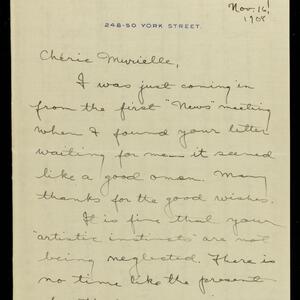 Nov. 16!
1908
248-50 YORK STREET.
Chérie Murielle,
I was just coming in
from the first "News" meeting
when I found your letter
waiting for me - it seemed
like a good omen. Many
thanks for the good wishes.
It is fine that your
"artistic instincts" are not
being neglected. There is
no time like the present